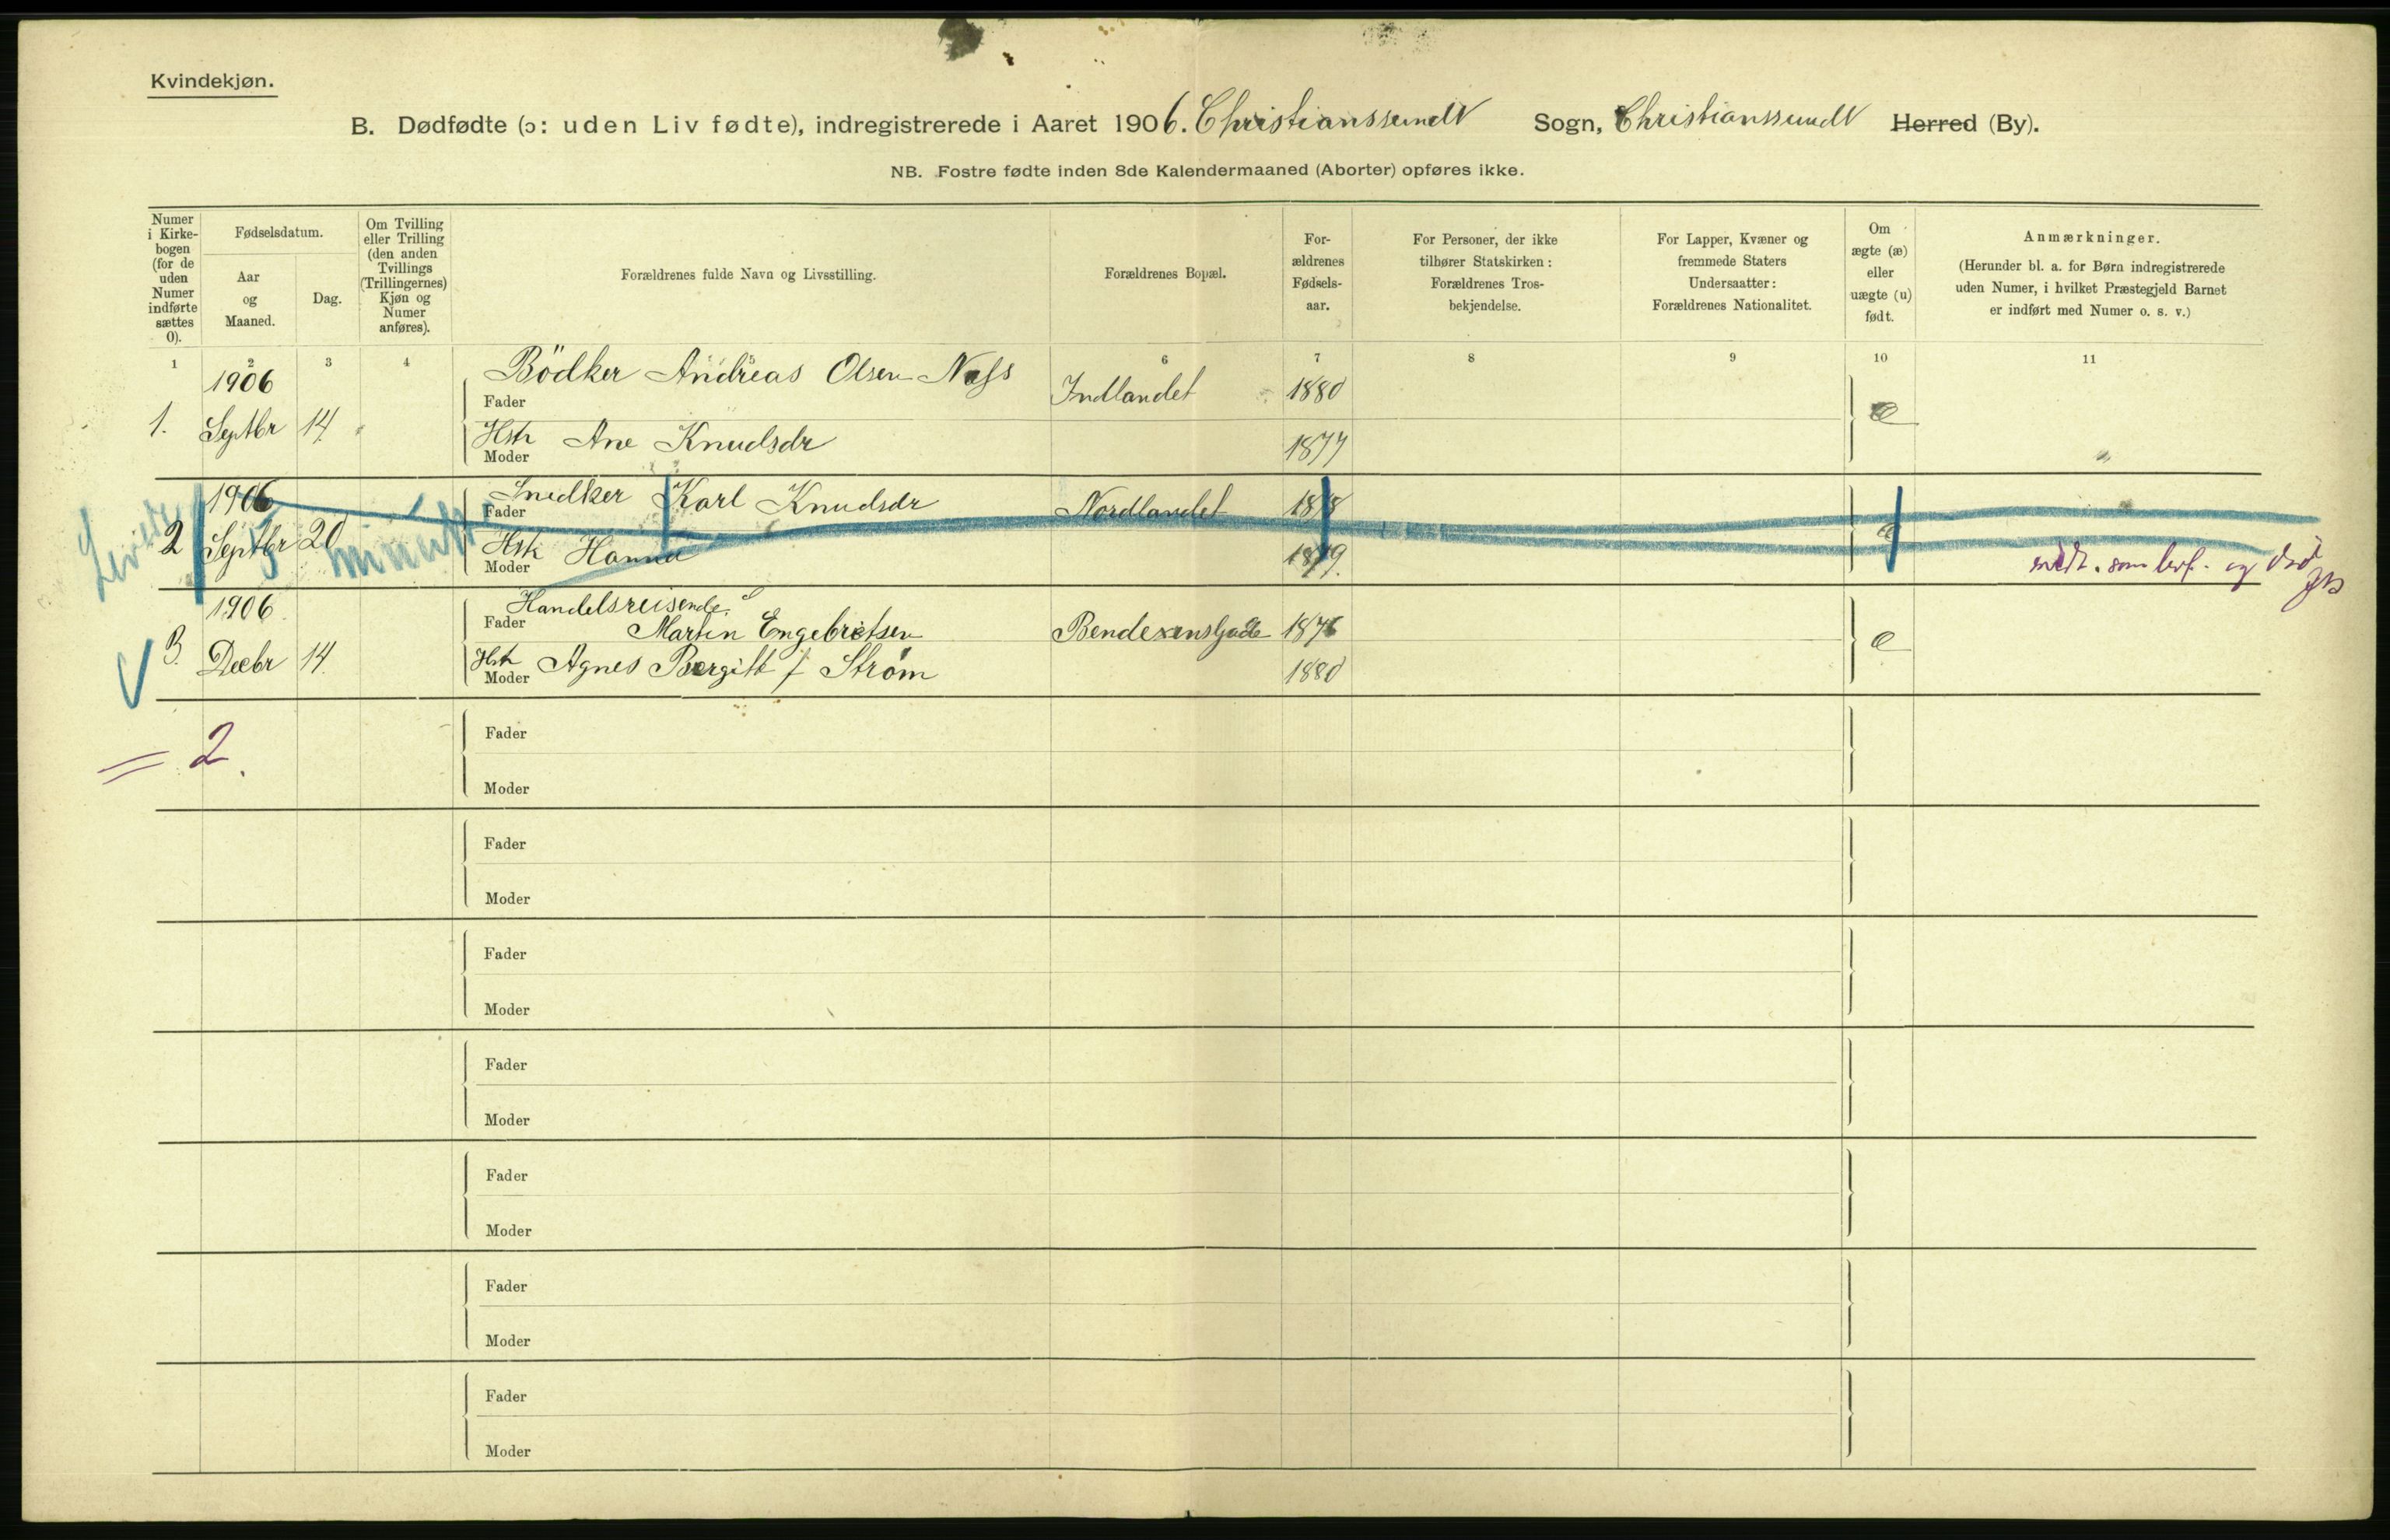 Kvindekjøn.
B. Dødfødte (ɔ: uden Liv fødte), indregistrerede i Aaret 1906. Christianssund Sogn, Christianssund Herred (By).
NB. Fostre fødte inden 8de Kalendermaaned (Aborter) opføres ikke.
Numer i Kirkebogen (for de uden Numer indførte sættes 0).
Fødselsdatum.
Aar og Maaned.
Dag.
Om Tvilling eller Trilling (den anden Tvillings (Trillingernes) Kjøn og Numer anføres).
Forældrenes fulde Navn og Livsstilling.
Forældrenes Bopæl.
For-ældrenes Fødsels-aar.
For Personer, der ikke tilhører Statskirken: Forældrenes Tros-bekjendelse.
For Lapper, Kvæner og fremmede Staters Undersaatter: Forældrenes Nationalitet.
Om ægte (æ) eller uægte (u) født.
Anmærkninger.
(Herunder bl. a. for Børn indregistrerede uden Numer, i hvilket Præstegjeld Barnet er indført med Numer o. s. v.)
1 2 3 4 5 6 7 8 9 10 11
1906 Bödker Andreas Olsen Næss Indlandet 1880
Fader
1. Septbr 14. Hstr Ane Knudsdr 1877 æ
Moder
1906 Snedker Karl Knudsdr Nordlandet 1878
Fader
2 Septbr 20 Hstr Hanna 1879.
Moder
Levede 5 minutter
og død
1906. Handelsreisende
Fader Martin Engebretsen Bendexensgade 1876
3. Decbr 14. Hstr Agnes Bergitt f Strøm 1880 æ
Moder
= 2.
Fader
Moder
Fader
Moder
Fader
Moder
Fader
Moder
Fader
Moder
Fader
Moder
Fader
Moder